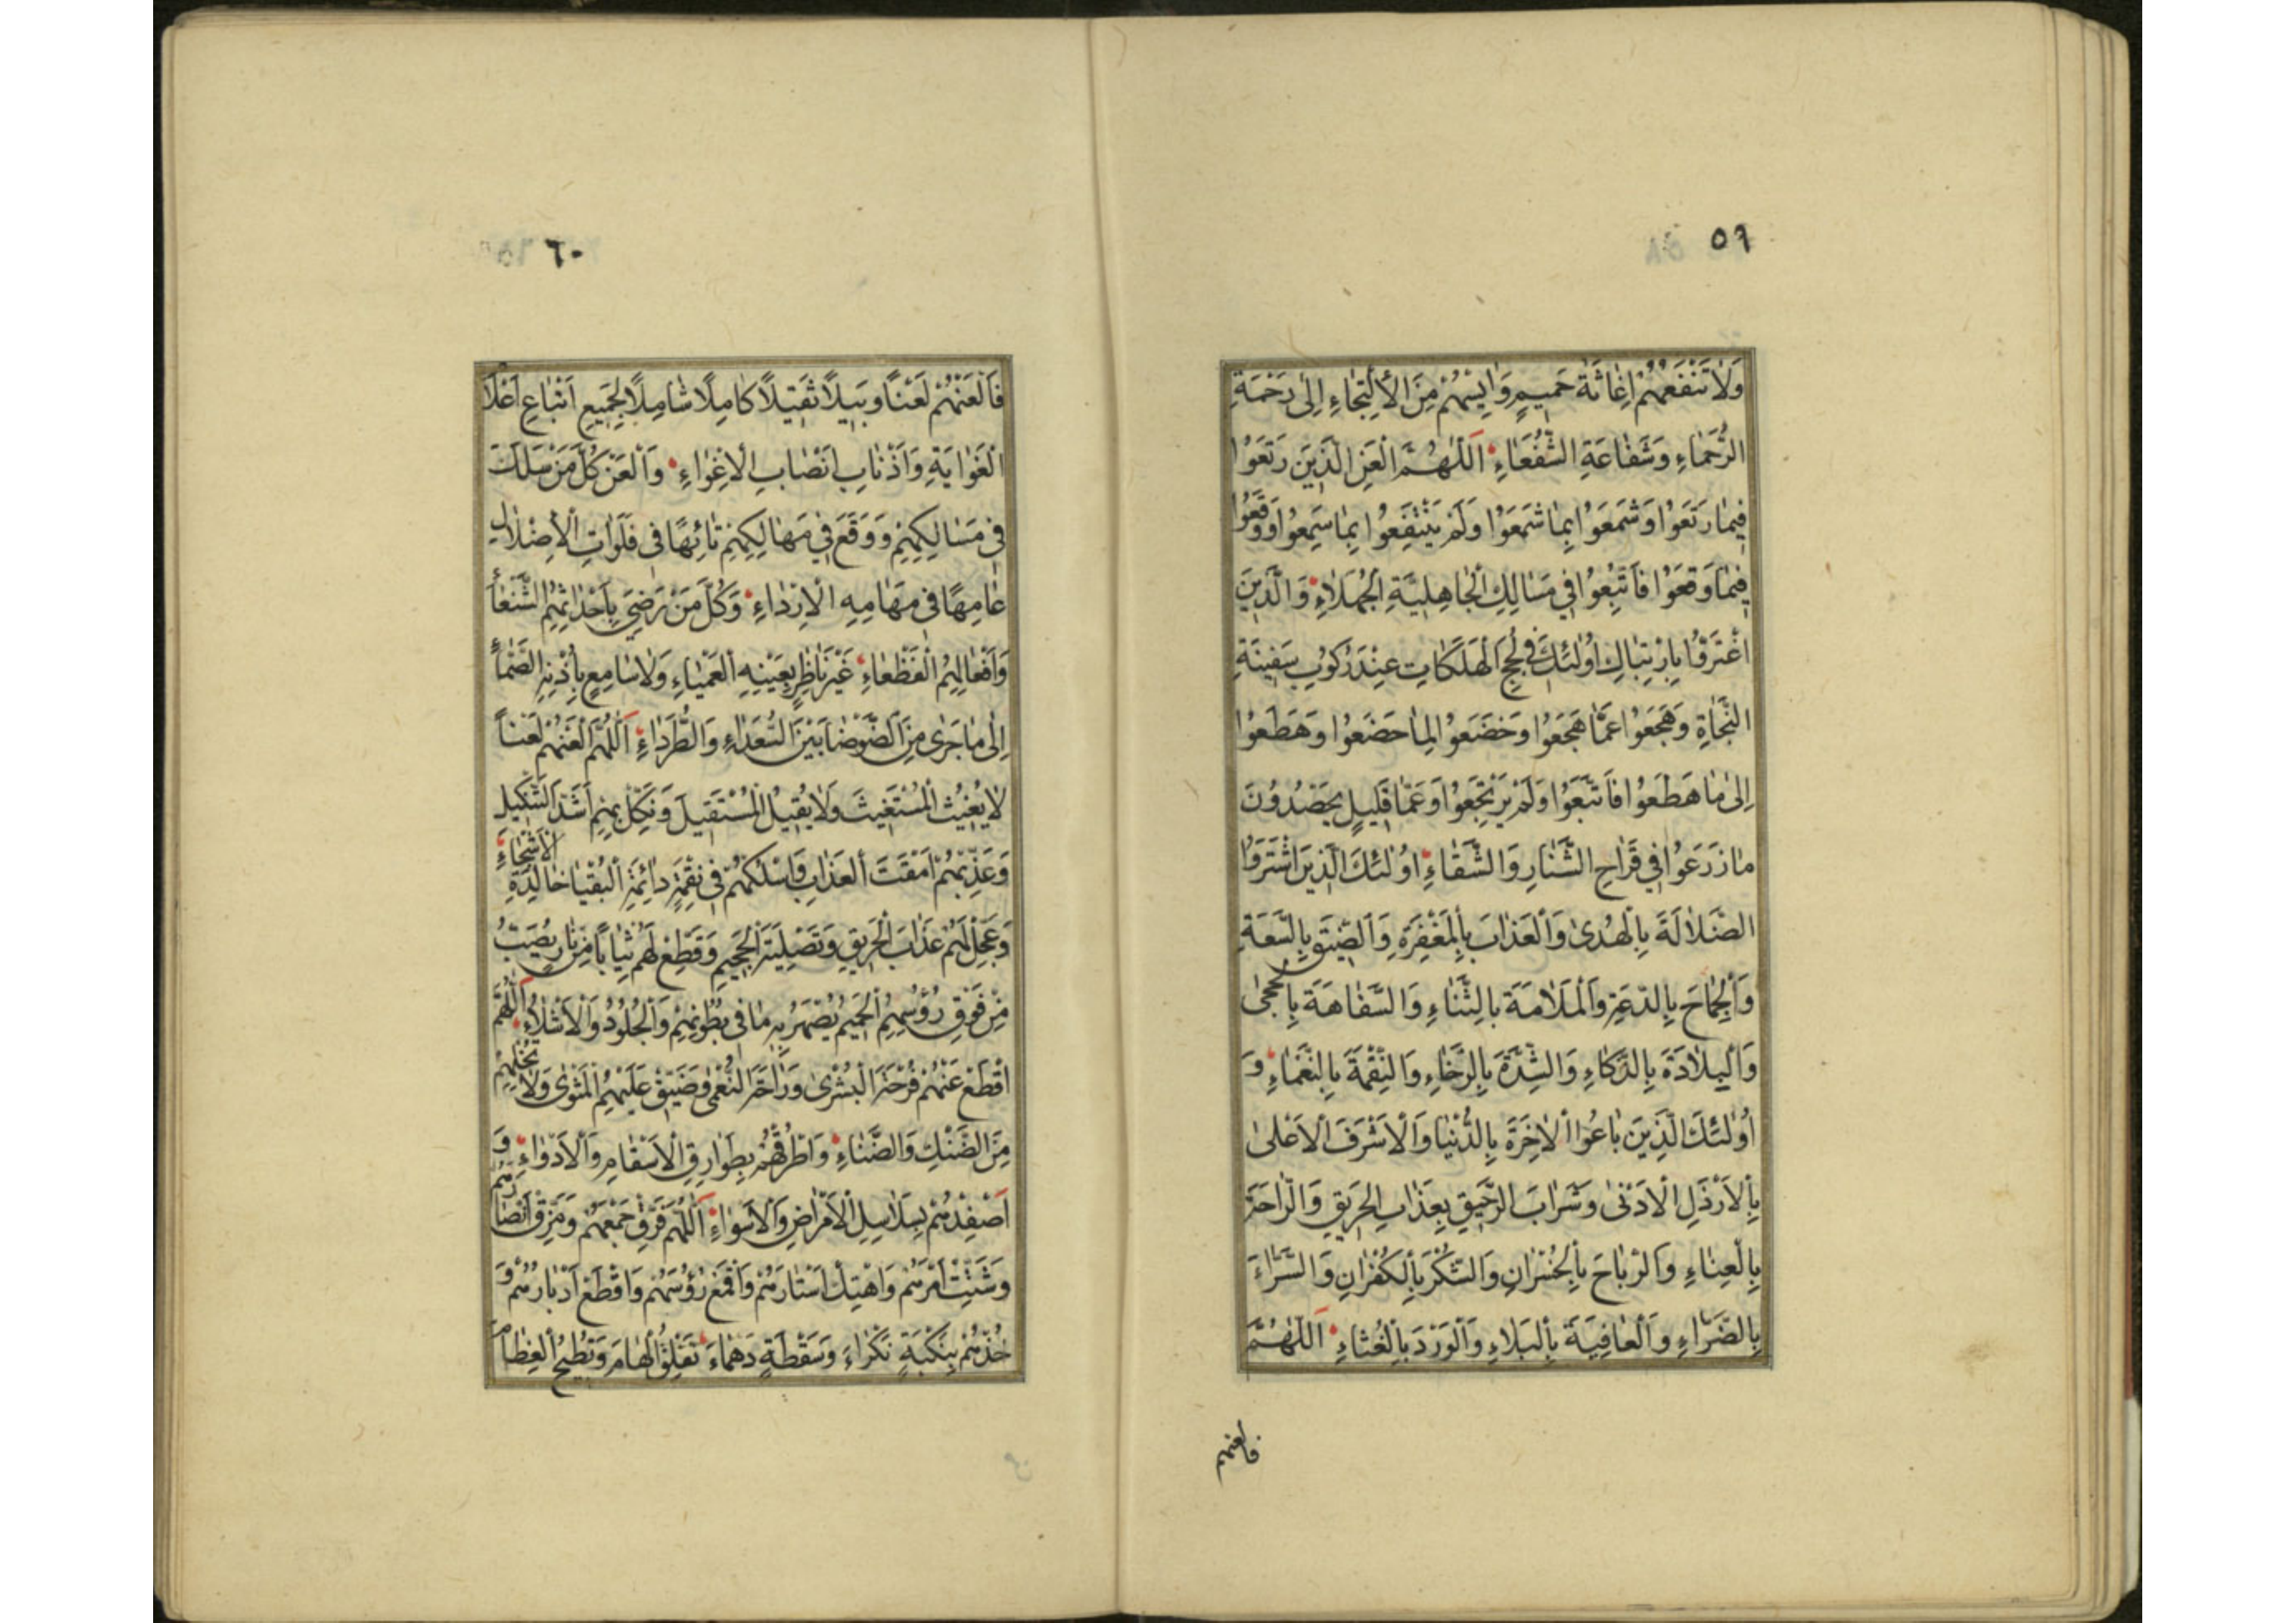 ٥٩
وَلَا تَنْفَعُهُمْ اِغَاثَةُ حَمِيمٍ وَايِسْهُمْ مِنَ الْاِلْتِجَاءِ اِلٰى رَحْمَةِ
الرُّحَمَاءِ وَشَفَاعَةِ الشُّفَعَاءِ اَللّٰهُمَّ الْعَنِ الَّذِينَ رَتَعَوْا
فِيمَا رَتَعَوْا وَشَمَعَوْا بِمَا شَمَعَوْا وَلَمْ يَنْتَفِعُوا بِمَا سَمِعُوا وَوَقَعُوا
فِيمَا وَقَعَوْا فَاتَّبِعُوا فِي مَسَالِكِ الْجَاهِلِيَّةِ الْجُهَلَاءِ وَالَّذِينَ
اغْتَرَفُوا بِارْتِبَاكِ اُولٰئِكَ فِي لُجَجِ الْهَلَكَاتِ عِنْدَ رُكُوبِ سَفِينَةِ
النَّجَاةِ وَهَجَعَوْا عَمَّا هَجَعَوْا وَخَضَعَوْا لِمَا خَضَعُوا وَهَطَعُوا
اِلٰى مَا هَطَعُوا فَاتَّبَعَوْا وَلَمْ يَرْتَجِعُوا وَعَمَّا قَلِيلٍ يَحْصُدُونَ
مَا زَرَعَوْا فِي قَرَاحِ الشَّنَارِ وَالشَّقَاءِ اُولٰئِكَ الَّذِينَ اشْتَرَوُا
الضَّلَالَةَ بِالْهُدٰى وَالْعَذَابَ بِالْمَغْفِرَةِ وَالضِّيقَ بِالسَّعَةِ
وَالْجِمَاحَ بِالدَّعَةِ وَالْمَلَامَةَ بِالثَّنَاءِ وَالسَّفَاهَةَ بِالْحِجٰى
وَالْبِلَادَةَ بِالذَّكَاءِ وَالشِّدَّةَ بِالرَّخَاءِ وَالنِّقْمَةَ بِالنَّعْمَاءِ وَ
اُولٰئِكَ الَّذِينَ بَاعُوا الْاٰخِرَةَ بِالدُّنْيَا وَالْاَشْرَفَ الْاَعْلٰى
بِالْاَرْذَلِ الْاَدْنٰى وَشَرَابَ الرَّحِيقِ بِعَذَابِ الْحَرِيقِ وَالرَّاحَةَ
بِالْعِنَاءِ وَالرَّبَاحَ بِالْخُسْرَانِ وَالشُّكْرَ بِالْكُفْرَانِ وَالسَّرَّاءَ
بِالضَّرَاءِ وَالْعَافِيَةَ بِالْبَلَاءِ وَالْوَرْدَ بِالْغُثَاءِ اَللّٰهُمَّ
فالعنهم
٦٠
فَالْعَنْهُمْ لَعْنًا وَبِيلًا ثَقِيلًا كَامِلًا شَامِلًا لِجَمِيعِ اَتْبَاعِ اَعْلَامِ
الْغَوَايَةِ وَاَذْنَابِ اَنْصَابِ الْاِغْوَاءِ وَالْعَنْ كُلَّ مَنْ سَلَكَ
فِي مَسَالِكِهِمْ وَوَقَعَ فِي مَهَالِكِهِمْ تَائِهًا فِي فَلَوَاتِ الْاِضْلَالِ
عَامِهًا فِي مَهَامِهِ الْاِرْدَاءِ وَكُلَّ مَنْ رَضِيَ بِاَحْدَاثِهِمُ الشَّنْعَاءِ
وَاَفْعَالِهِمُ الْفَظْعَاءِ غَيْرَ نَاظِرٍ بِعَيْنِهِ الْعَمْيَاءِ وَلَا سَامِعٍ بِاُذْنِهِ الصَّمَّاءِ
اِلٰى مَا جَرٰى مِنَ الضَّوْضَا بَيْنَ السُّعَدَاءِ وَالطُّرَدَاءِ اَللّٰهُمَّ الْعَنْهُمْ لَعْنًا
لَا يُغِيثُ الْمُسْتَغِيثَ وَلَا يُقِيلُ الْمُسْتَقِيلَ وَنَكِّلْ بِهِمْ اَشَدَّ التَّنْكِيلِ
وَعَذِّبْهُمْ اَمْقَتَ الْعَذَابِ وَاسْلُكْهُمْ فِي نِقْمَةٍ دَائِمَةِ الْبُقْيَا خَالِدَةِ الْاَشْجَاءِ
وَعَجِّلْ لَهُمْ عَذَابَ الْحَرِيقِ وَتَصْلِيَةَ الْجَحِيمِ وَقَطِّعْ لَهُمْ ثِيَابًا مِنْ نَارٍ يُصَبُّ
مِنْ فَوْقِ رُؤُسِهِمُ الْحَمِيمُ يُصْهَرُ بِهِ مَا فِي بُطُونِهِمْ وَالْجُلُودُ وَالْاَشْلَاءُ اَللّٰهُمَّ
اقْطَعْ عَنْهُمْ فَرْحَةَ الْبُشْرٰى وَرَاحَةَ النُّعْمٰى وَضَيِّقْ عَلَيْهِمُ الْمَثْوٰى وَلَا تُخْلِهِمْ
مِنَ الضَّنْكِ وَالضَّنَاءِ وَاطْرُقْهُمْ بِطَوَارِقِ الْاَسْقَامِ وَالْاَدْوَاءِ وَ
اَصْفِدْهُمْ بِسَلَاسِلِ الْاَمْرَاضِ وَالْاَسْوَاءِ اَللّٰهُمَّ فَرِّقْ جَمْعَهُمْ وَمَزِّقْ اَنْصَارَهُمْ
وَشَتِّتْ اَمْرَهُمْ وَاهْتِكْ اَسْتَارَهُمْ وَاقْمَعْ رُؤُسَهُمْ وَاقْطَعْ اَدْبَارَهُمْ وَ
خُذْهُمْ بِنَكْبَةٍ نَكْرَاءَ وَسَقْطَةٍ دَهْمَاءَ تَفْلِقُ الْهَامَ وَتُطِيحُ الْعِظَامَ